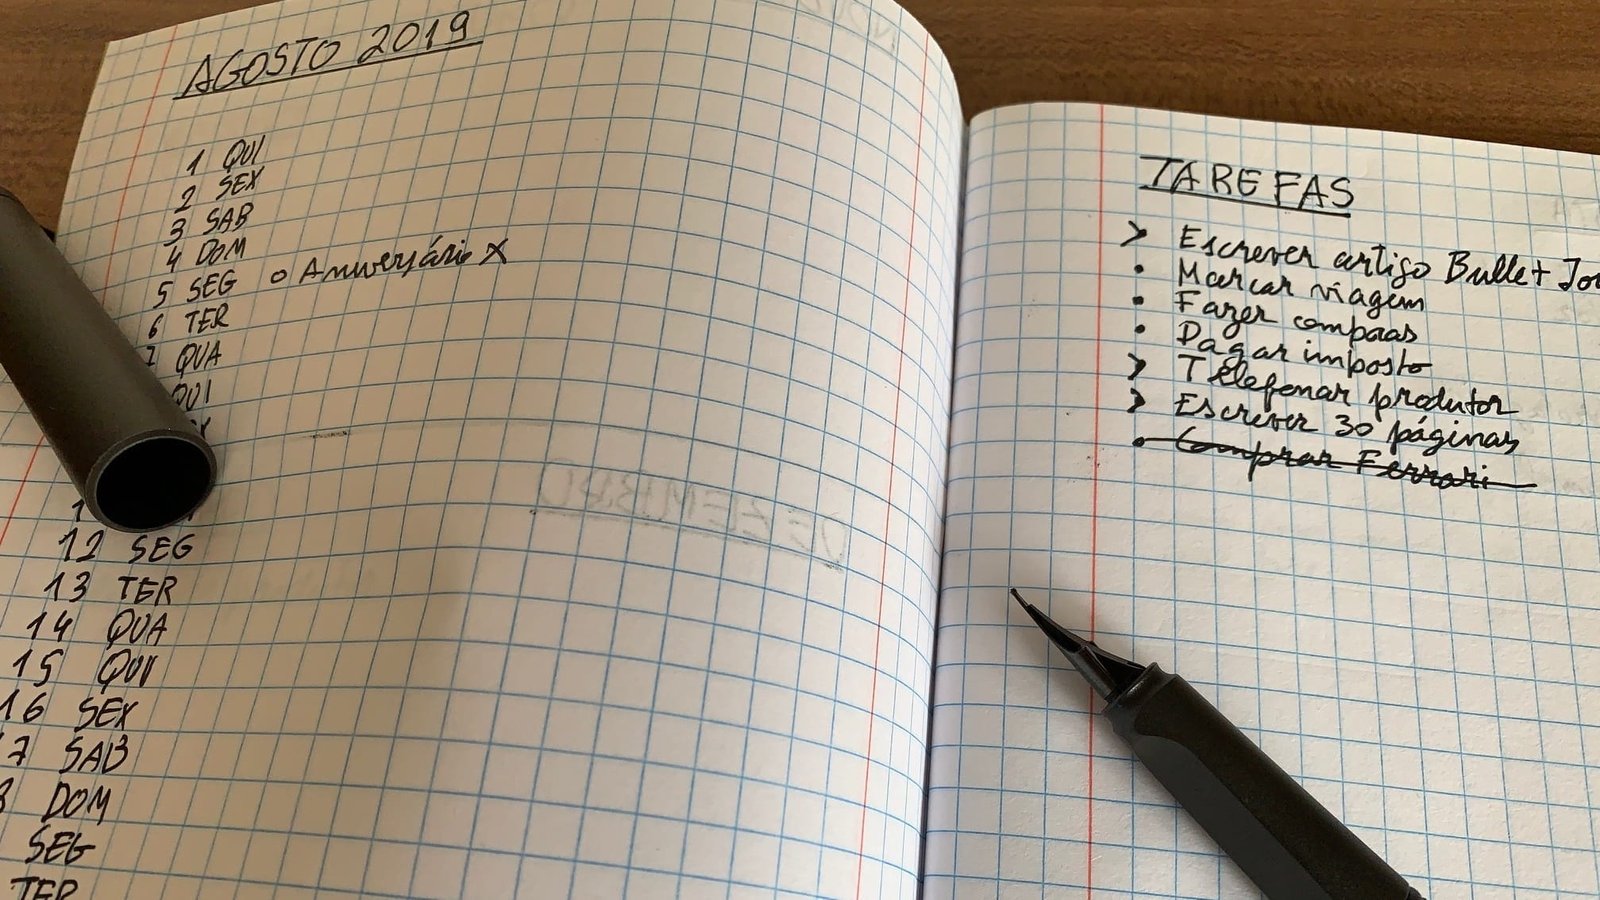 AGOSTO 2019
1 QUI
2 SEX
3 SAB
4 DOM
5 SEG o Aniversário X
6 TER
7 QUA
QUI
12 SEG
13 TER
14 QUA
15 QUI
16 SEX
7 SAB
8 DOM
SEG
TER
TAREFAS
> Escrever artigo Bullet Jou
• Marcar viagem
• Fazer compras
• Pagar imposto
> Telefonar produtor
> Escrever 30 páginas
• Comprar Ferrari
DEZEMBRO